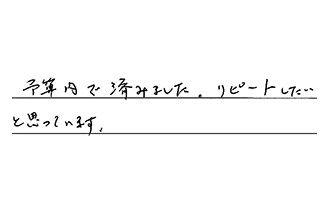 予算内で済みました。リピートしたい
と思っています。